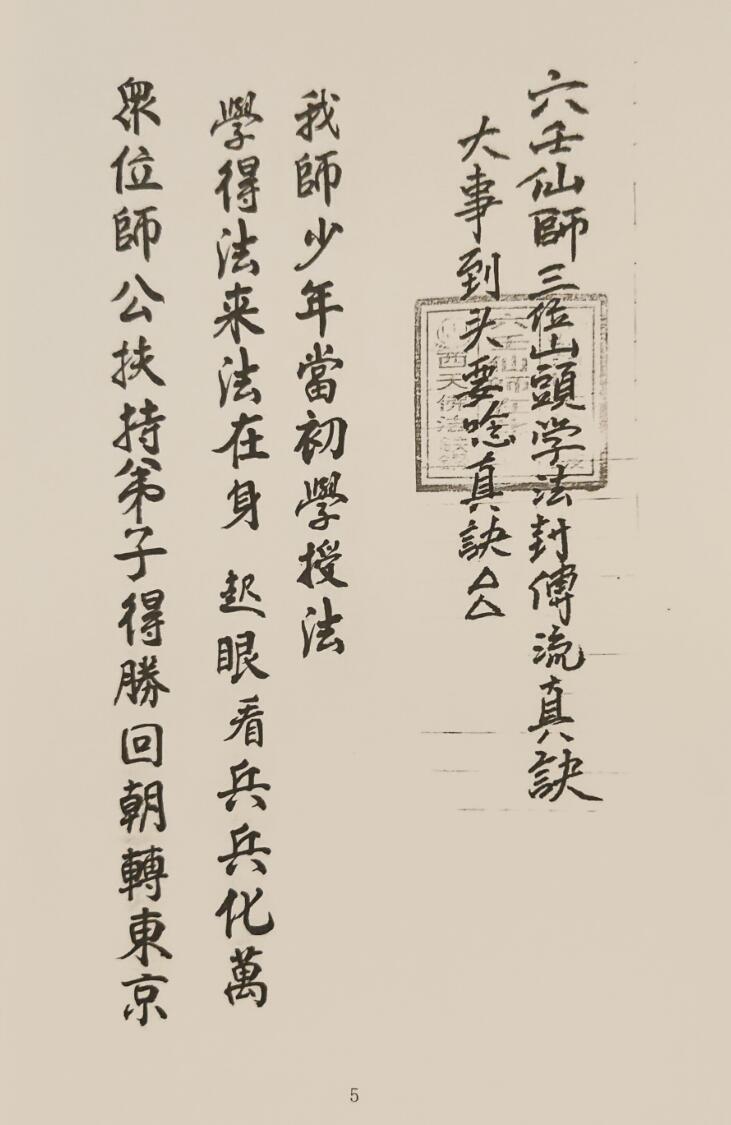 六壬仙師三位山頭学法封傳流真訣
大事到头要唸真訣
我師少年當初學授法
學得法来法在身 起眼看兵兵化萬
衆位師公扶持弟子得勝回朝轉東京
六壬仙師
西天佛法
5